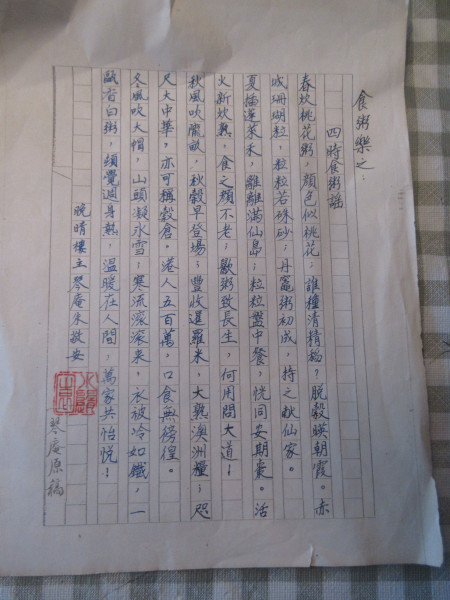 食粥樂之：
四時食粥謠
春炊桃花粥，顏色似桃花；誰種清精稻？脫殼映朝霞。赤
城珊瑚粒，粒粒若硃砂；丹竈粥初成，持之飫仙家。
夏插蓬萊禾，離離滿仙島；粒粒盤中餐，恍同安期棗。活
火新炊熟，食之顏不老；歠粥致長生，何用問大道！
秋風吹隴畝，秋穀早登場；豐收暹羅米，大熟澳洲糧；咫
尺大中華，亦可稱穀倉。港人五百萬，口食無徬徨。
冬風吹大帽，山頭凝冰雪；寒流滾滾來，衣被冷如鐵，一
歐省白粥，須覺週身熱，溫暖在人間，萬家共怡悅！
晚晴樓主琴庵朱敬安
琴庵原稿